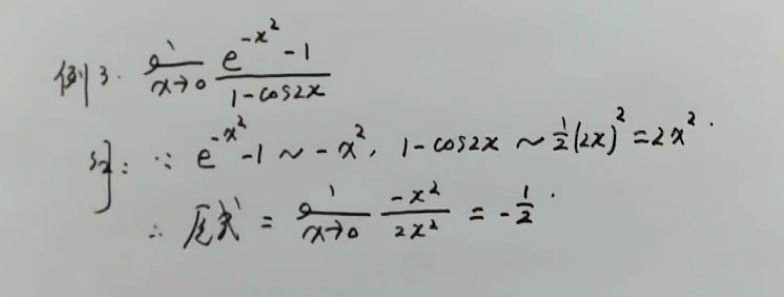 例3. lim_{x→0} \frac{e^{-x^2}-1}{1-cos2x}
解: ∵ e^{-x^2}-1 ~ -x^2, 1-cos2x ~ \frac{1}{2}(2x)^2=2x^2.
∴ 原式 = lim_{x→0} \frac{-x^2}{2x^2} = -\frac{1}{2}.